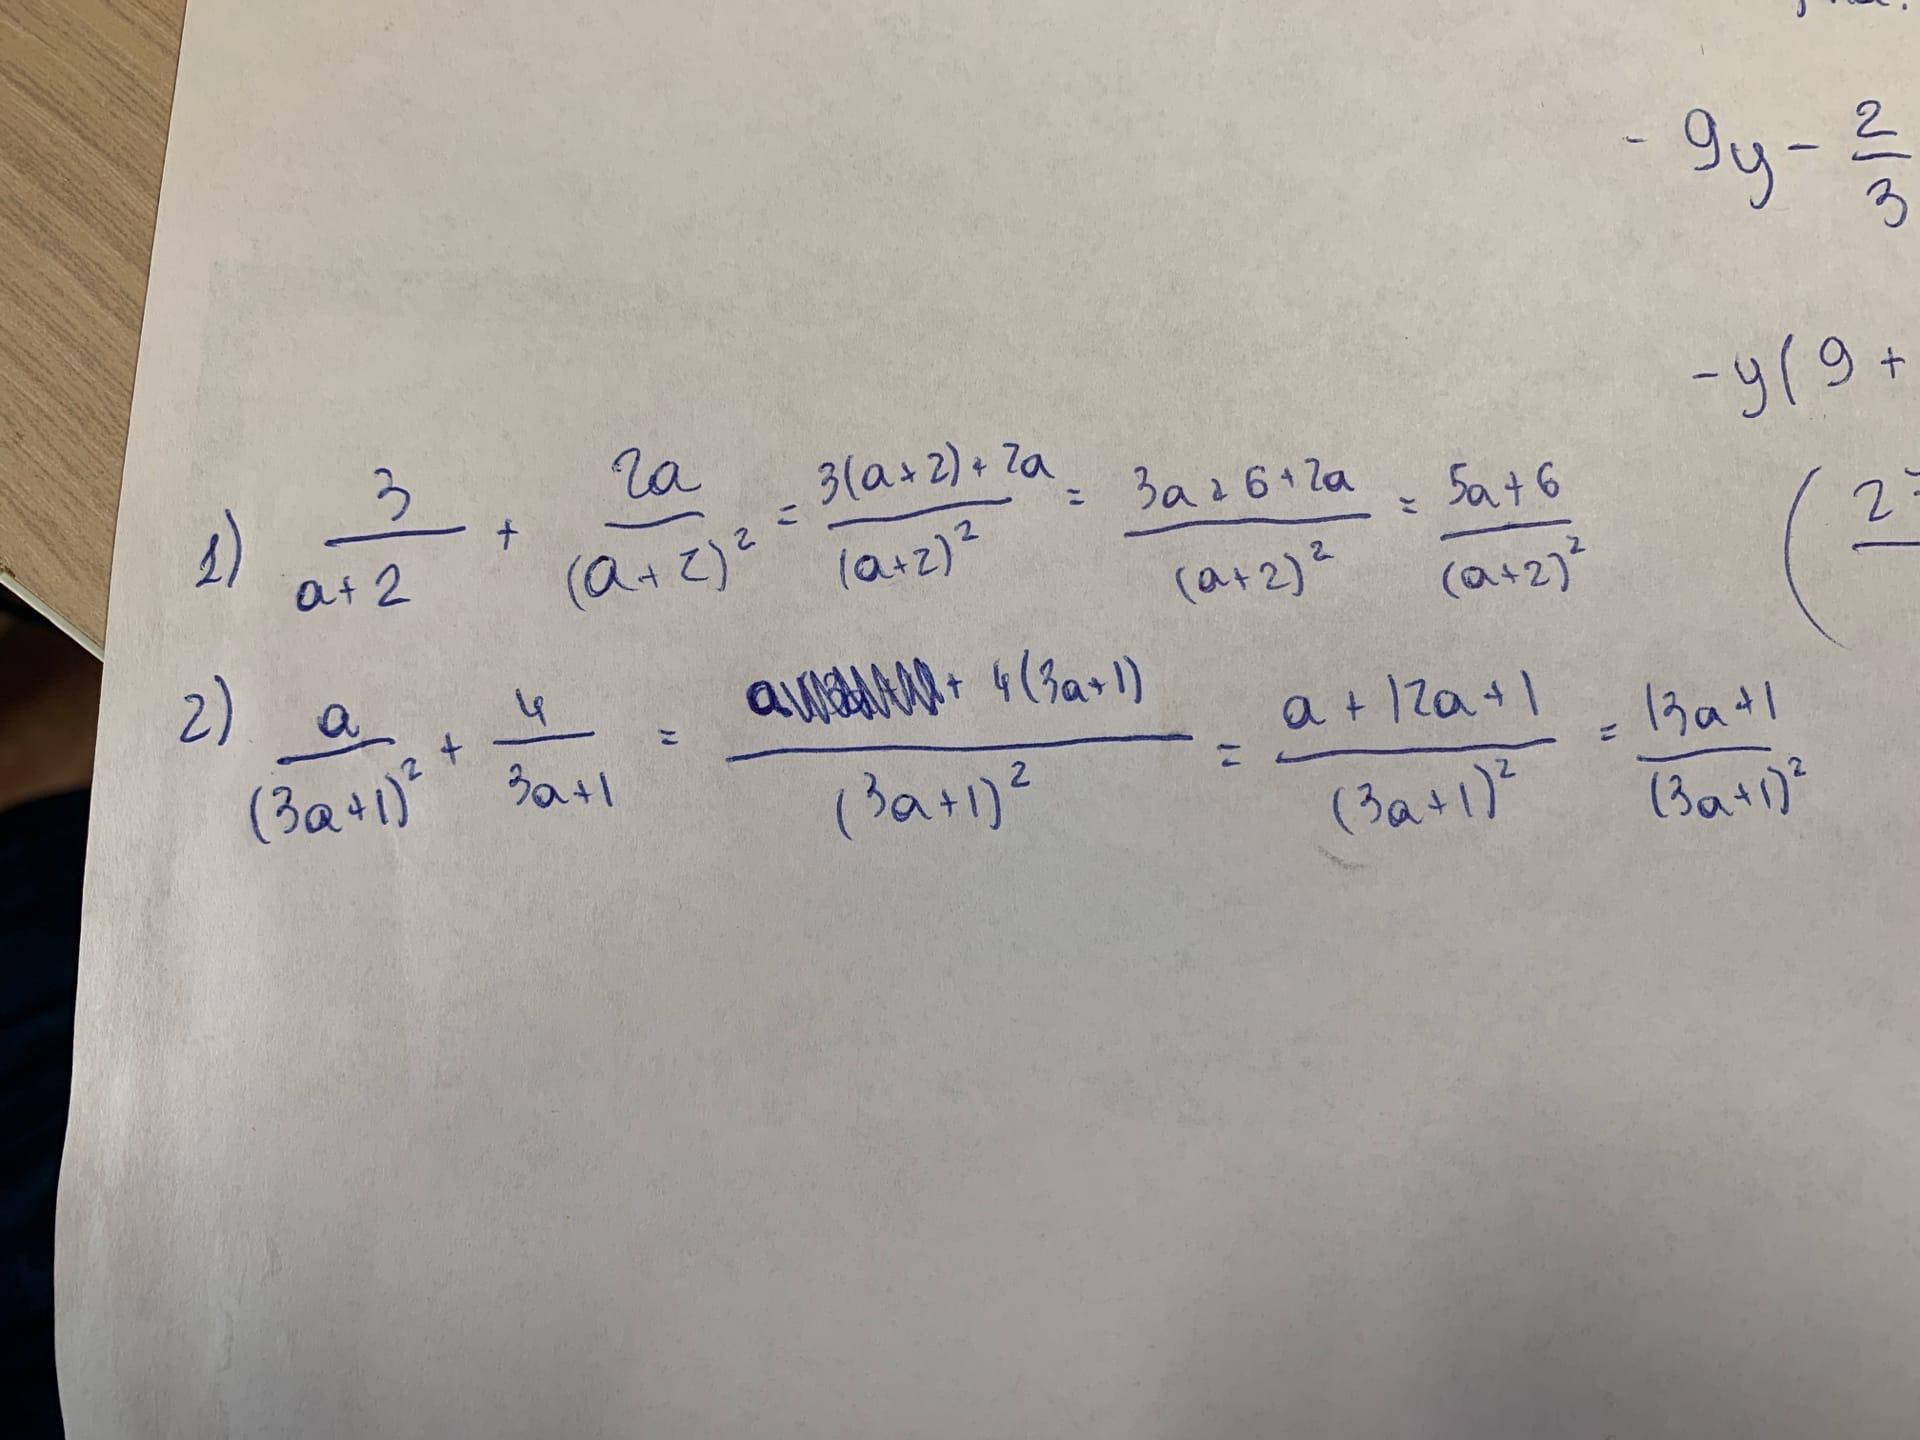 - 9y - 2/3
-y(9 +
1) 3/(a+2) + 2a/(a+2)² = (3(a+2)+2a)/(a+2)² = (3a+6+2a)/(a+2)² = (5a+6)/(a+2)²
2) a/(3a+1)² + 4/(3a+1) = (a + 4(3a+1))/(3a+1)² = (a+12a+1)/(3a+1)² = (13a+1)/(3a+1)²